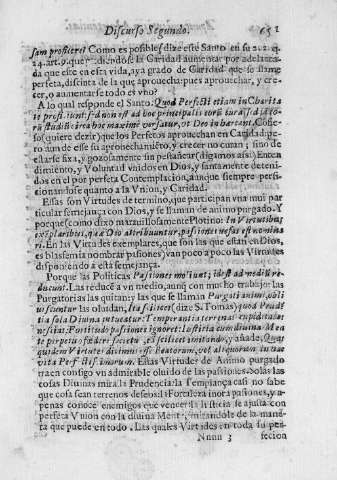 Discurso Segundo. 651
sam proficere? Como es posible (dize este Santo en su 2.2. q.
24. art. 9. que pudiendose la Caridad aumentar por adelanta-
da que este en esta vida, aya grado de Caridad que se llame
perfeta, distinta de la que aprovecha; pues aprovechar, y cre-
cer, o aumentarse todo es vno?
A lo qual responde el Santo. Quod Perfecti etiam in Charita
te proficiunt: sed non est ad hoc principalis eorum cura, sed
eorum studium circa hoc maxime versatur, ut Deo inhæreant. Confie-
so (quiere dezir) que los Perfetos aprovechan en Caridad; pe-
ro aun de esse su aprovechamiento, y crecer no curan; sino de
estarse fixa, y gozosamente sin pestañear (digamos assi) Enten
dimiento, y Voluntad vnidos en Dios, y santamente deteni-
dos en el por perfeta Contemplacion, aunque siempre perfi-
cionandose quanto a la Vnion, y Caridad.
Essas son Virtudes de termino, que participan vna mui par
ticular semejança con Dios, y se llaman de animo purgado. Y
porque (como dixo maravillosamente Plotino) In Virtutibus
exemplaribus, quæ Deo attribuuntur, passiones nefas est nomina
ri. En las Virtudes exemplares, que son las que estan en Dios,
es blasfemia nombrar passiones) van poco a poco las Virtudes
disponiendo à esta semejança.
Porque las Politicas Passiones molliunt; idest ad medium re-
ducunt. Las reducē a vn medio, aunq con mucho trabajo: las
Purgatorias las quitan; y las que se llaman Purgati animi, obli
viscuntur las olvidan, Ita scilicet (dize S. Tomas) quod Pruden
tia sola Divina intueatur. Temperantia terrenas cupiditates
nesciat. Fortitudo passiones ignoret: Iustitia cum divina Men
te perpetuo fœdere societur, ea scilicet imitando, y añade, Quas
quidem Virtutes dicimus esse Beatorum, vel aliquorum in hac
vita Perfectissimorum. Estas Virtudes de Animo purgado
traen consigo vn admirable olvido de las passiones. Solas las
cosas Divinas mira la Prudencia: la Templança casi no sabe
que cosa sean terrenos deseos: la Fortaleza inora passiones, y a-
penas conoce enemigos que vencer: la Iusticia se ajusta con
perfeta Vnion con la divina Mente, imitandole de la mane-
ra que puede en todo. Las quales Virtudes en toda su per-
Nnnn 3 feccion